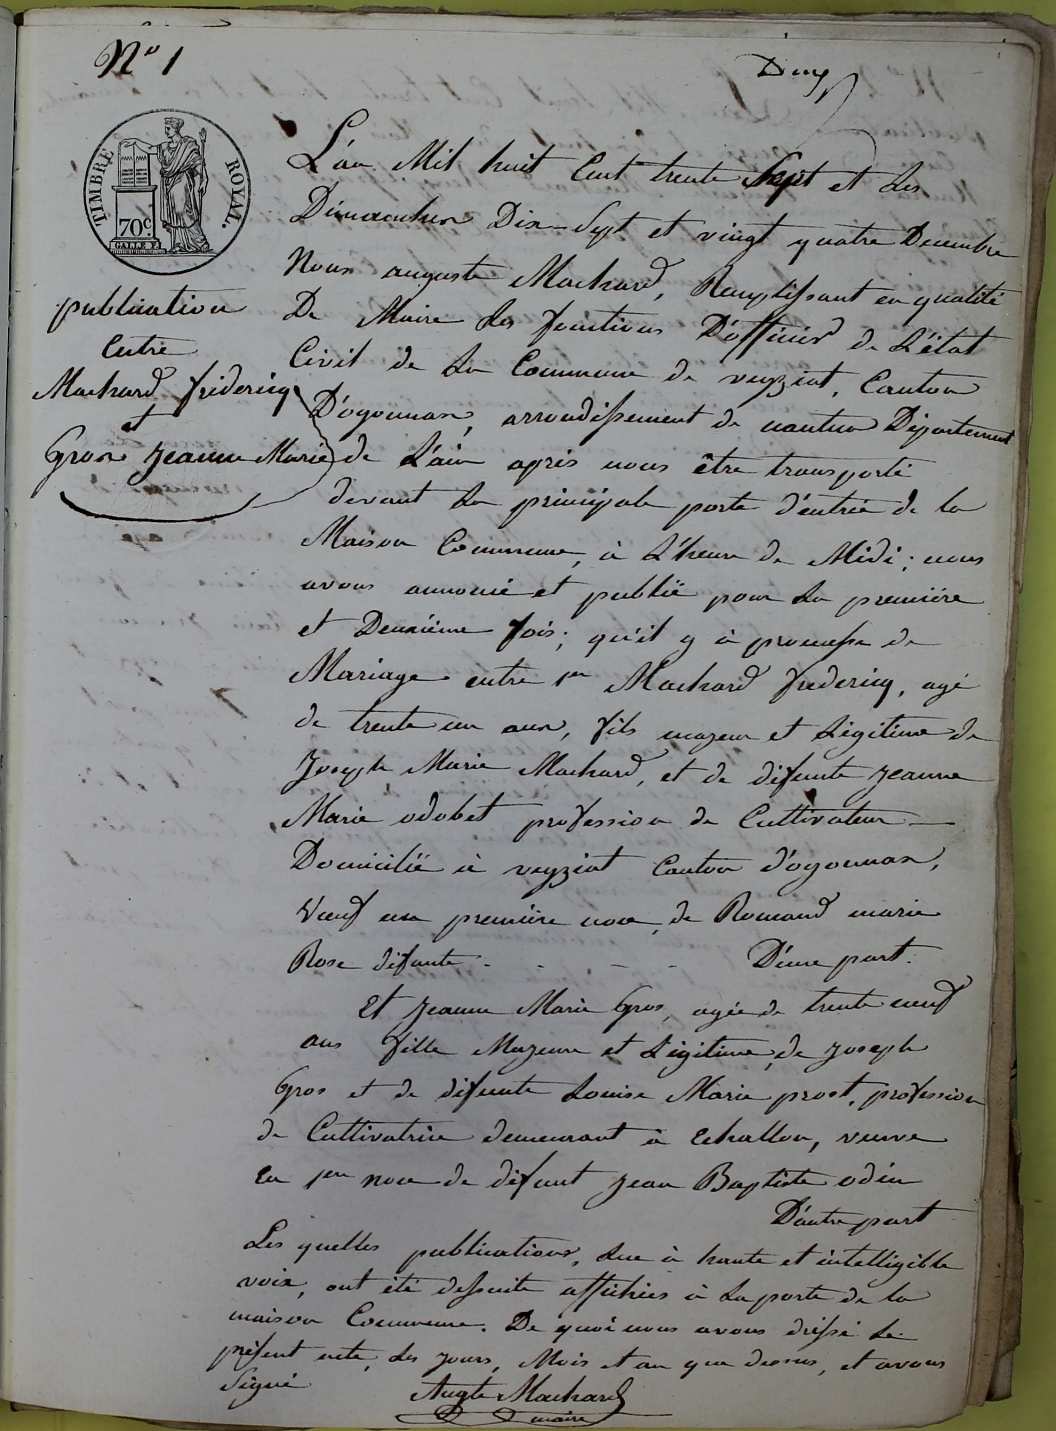 N° 1
TIMBRE ROYAL.
70c.
publication
Entre
Machard frédericq
et
Gros Jeanne Marie
L'an Mil huit Cent trente Sept et Les
Dimanches Dix-Sept et vingt quatre Decembre
Nous auguste Machard, Remplissant en qualité
De Maire Les fonctions D'officier de L'état
Civil de La Commune de veyziat, Canton
D'oyonnax, arrondissement de nantua Département
de L'ain après nous être transporté
devant La principale porte d'entrée de la
Maison Commune, à L'heure de Midi; nous
avons annoncé et publié pour La première
et Deuxième fois; qu'il y à promesse de
Mariage entre 1er Machard frederiq, agé
de trente un ans, fils majeur et Légitime de
Joseph Marie Machard, et de défunte jeanne
Marie odobet profession de Cultivateur —
Domicilié à veyziat Canton d'oyonnax,
Vœuf en première noce, de Romand marie
Rose défunte - - - - D'une part.
Et Jeanne Marie Gros, agée de trente neuf
ans fille Majeure et Légitime, de joseph
Gros et de défunte Louise Marie prost, profession
de Cultivatrice demeurant à Echallon, veuve
En 1ere noce de défunt jean Baptiste odin
D'autre part
Les quelles publications, Lue à haute et intelligible
voix, ont été dessuite affichées à La porte de la
maison Commune. De quoi nous avons dréssé Le
présent acte, Les jours, Mois et an que dessus, et avons
Signé
Augte Machard
maire